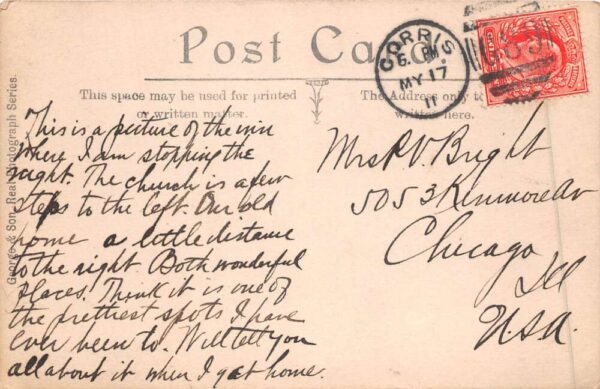 Post Card
CORRIS
5. PM
MY 17
11
This space may be used for printed
or written matter.
The Address only to
written here.
George & Son, Real Photograph Series.
This is a picture of the inn
where I am stopping the
night. The church is a few
steps to the left. Our old
home a little distance
to the right. Both wonderful
places. Think it is one of
the prettiest spots I have
ever been to. Will tell you
all about it when I get home.
Mrs R.V. Bright
5053 Kenmore Av
Chicago
Ill
U.S.A.